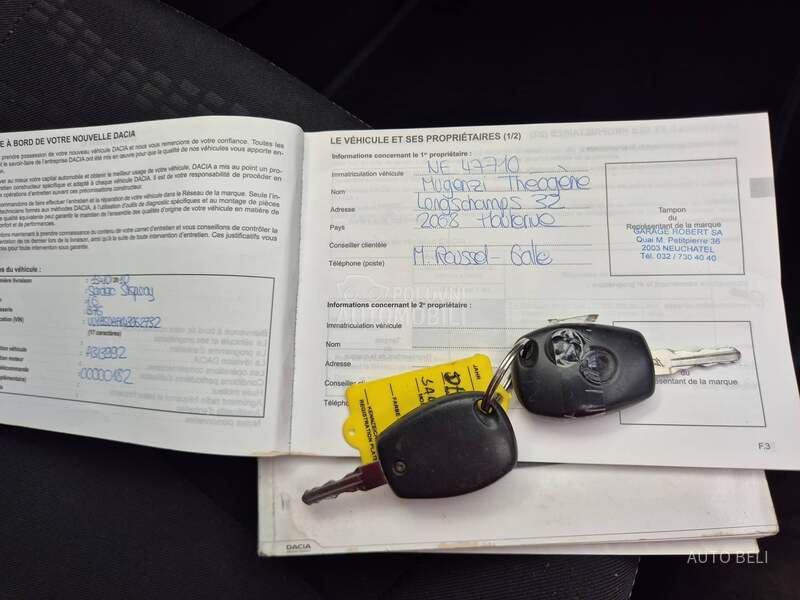 E À BORD DE VOTRE NOUVELLE DACIA
prendre possession de votre nouveau véhicule DACIA et nous vous remercions de votre confiance. Toutes les
et le savoir-faire de l'entreprise DACIA ont été mis en œuvre pour que la qualité de nos véhicules vous apporte en-
er au mieux votre capital automobile et obtenir le meilleur usage de votre véhicule, DACIA a mis au point un pro-
ntretien constructeur spécifique et adapté à chaque véhicule DACIA. Il est de votre responsabilité de procéder en
opérations d'entretien suivant ces préconisations constructeur.
commandons de faire effectuer l'entretien et la réparation de votre véhicule dans le Réseau de la marque. Seule l'in-
techniciens formés aux méthodes DACIA, à l'utilisation d'outils de diagnostic spécifiques et au montage de pièces
de qualité équivalente peut garantir le maintien de l'ensemble des qualités d'origine de votre véhicule en matière de
confort et de performances.
llons maintenant à prendre connaissance du contenu de votre carnet d'entretien et vous conseillons de contrôler la
entation de ce dernier lors de la livraison, ainsi qu'à la suite de toute intervention d'entretien. Ces justificatifs vous
pour toute intervention sous garantie.
ns du véhicule :
emière livraison :
: Dacia
sserie
cation (VIN) :
(17 caractères)
véhicule
ation moteur
élécommande : 00000182
plémentaire)
LE VÉHICULE ET SES PROPRIÉTAIRES (1/2)
Informations concernant le 1er propriétaire :
Immatriculation véhicule : NE 47710
Nom : Muganzi Theogène
Adresse : Longschamps 32
Pays : 2068 Hauterive
Conseiller clientèle
Téléphone (poste) : M. Roussel-Galle
Tampon
du
Représentant de la marque
GARAGE ROBERT SA
Quai M. Petitpierre 36
2003 NEUCHATEL
Tél. 032 / 730 40 40
Informations concernant le 2e propriétaire :
Immatriculation véhicule :
Nom
Adresse
Pays
Conseiller
Télépho
du
ésentant de la marque
F.3
JAHR
FARBE
KENNZEICHEN
REGISTRATION PLATE
POLOVNI
AUTOMOBILI
DACIA
AUTO BELI